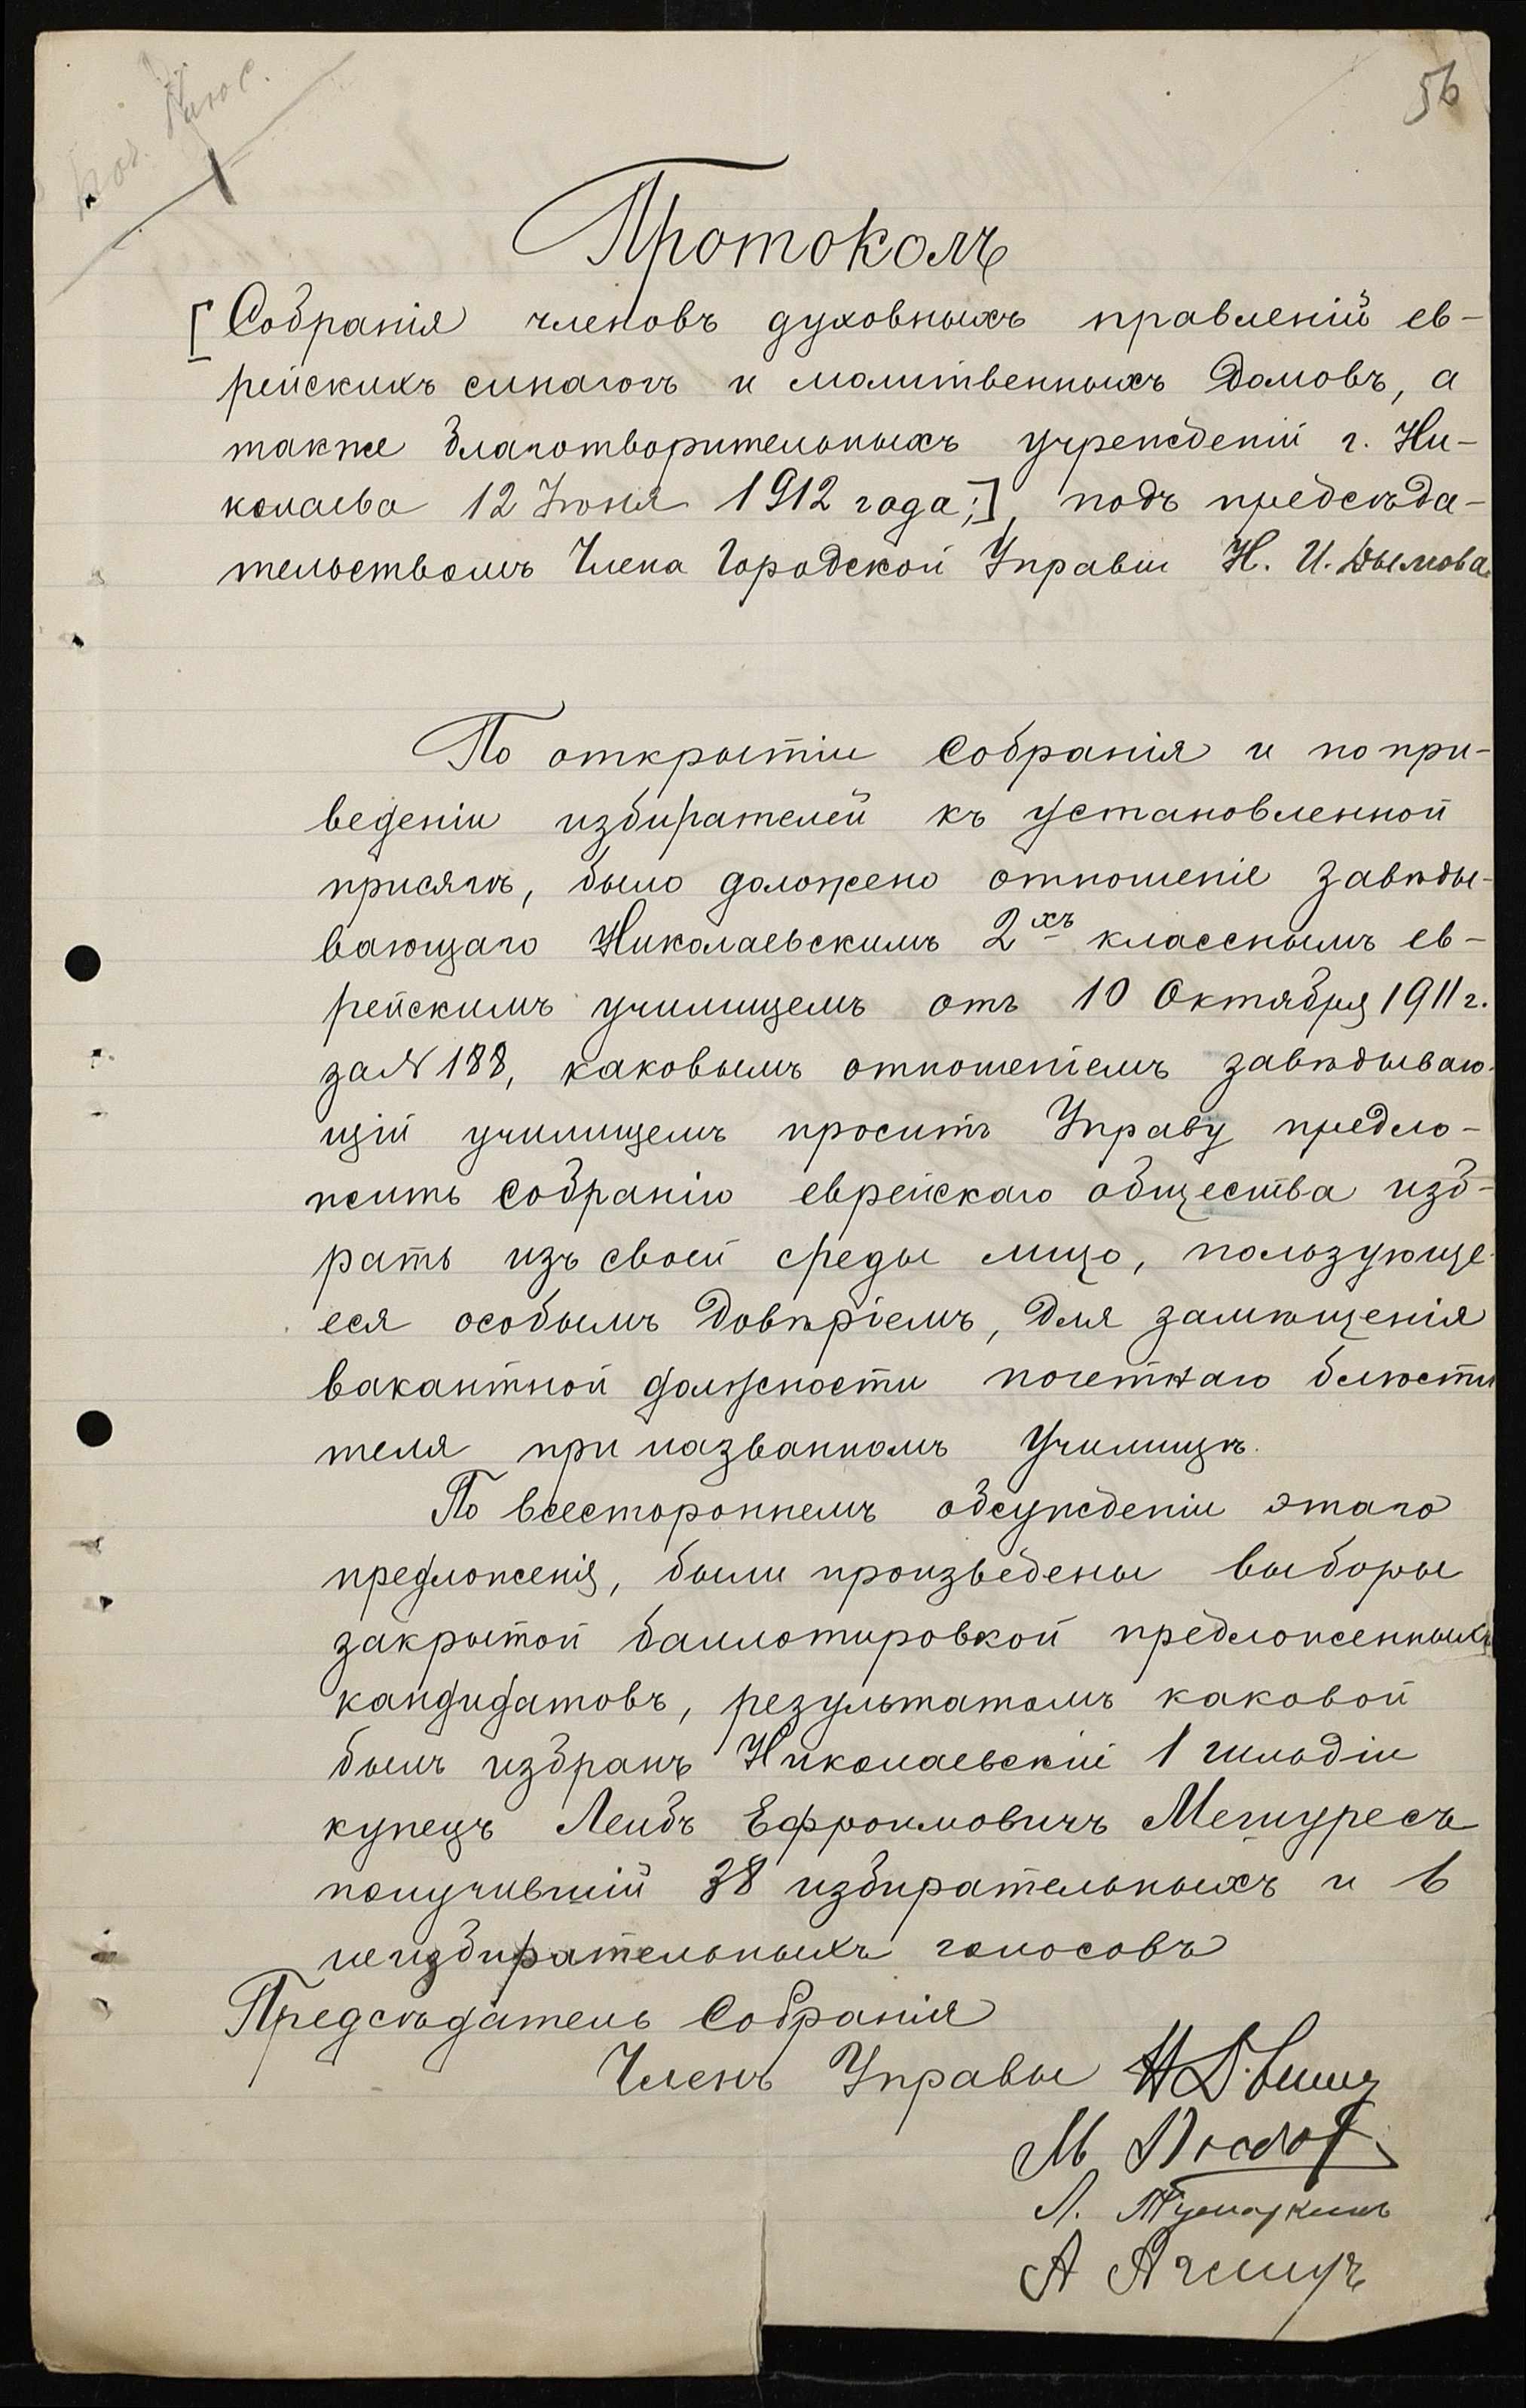 56
Протоколъ
[Собранія членовъ духовныхъ правленій ев-
рейскихъ синагогъ и молитвенныхъ домовъ, а
также благотворительныхъ учрежденій г. Ни-
колаева 12 Іюня 1912 года;], подъ предсѣда-
тельствомъ Члена Городской Управы Н. И. Дымова.
По открытіи Собранія и по при-
веденіи избирателей къ установленной
присягѣ, было доложено отношеніе завѣды-
вающаго Николаевскимъ 2хъ класснымъ ев-
рейскимъ училищемъ отъ 10 Октября 1911 г.
за № 188, каковымъ отношеніемъ завѣдываю-
щій училищемъ проситъ Управу предло-
жить собранію еврейскаго общества изб-
рать изъ своей среды лицо, пользующе-
еся особымъ довѣріемъ, для замѣщенія
вакантной должности почетнаго блюсти
теля при названномъ Училищѣ.
По всестороннемъ обсужденіи этаго
предложенія, были произведены выборы
закрытой баллотировкой предложенныхъ
кандидатовъ, результатомъ каковой
былъ избранъ Николаевскій 1 гильдіи
купецъ Лейбъ Ефроимовичъ Мешуресъ
получившій 38 избирательныхъ и 6
неизбирательныхъ голосовъ
Предсѣдатель Собранія
Членъ Управы
Л. Тумаркинъ